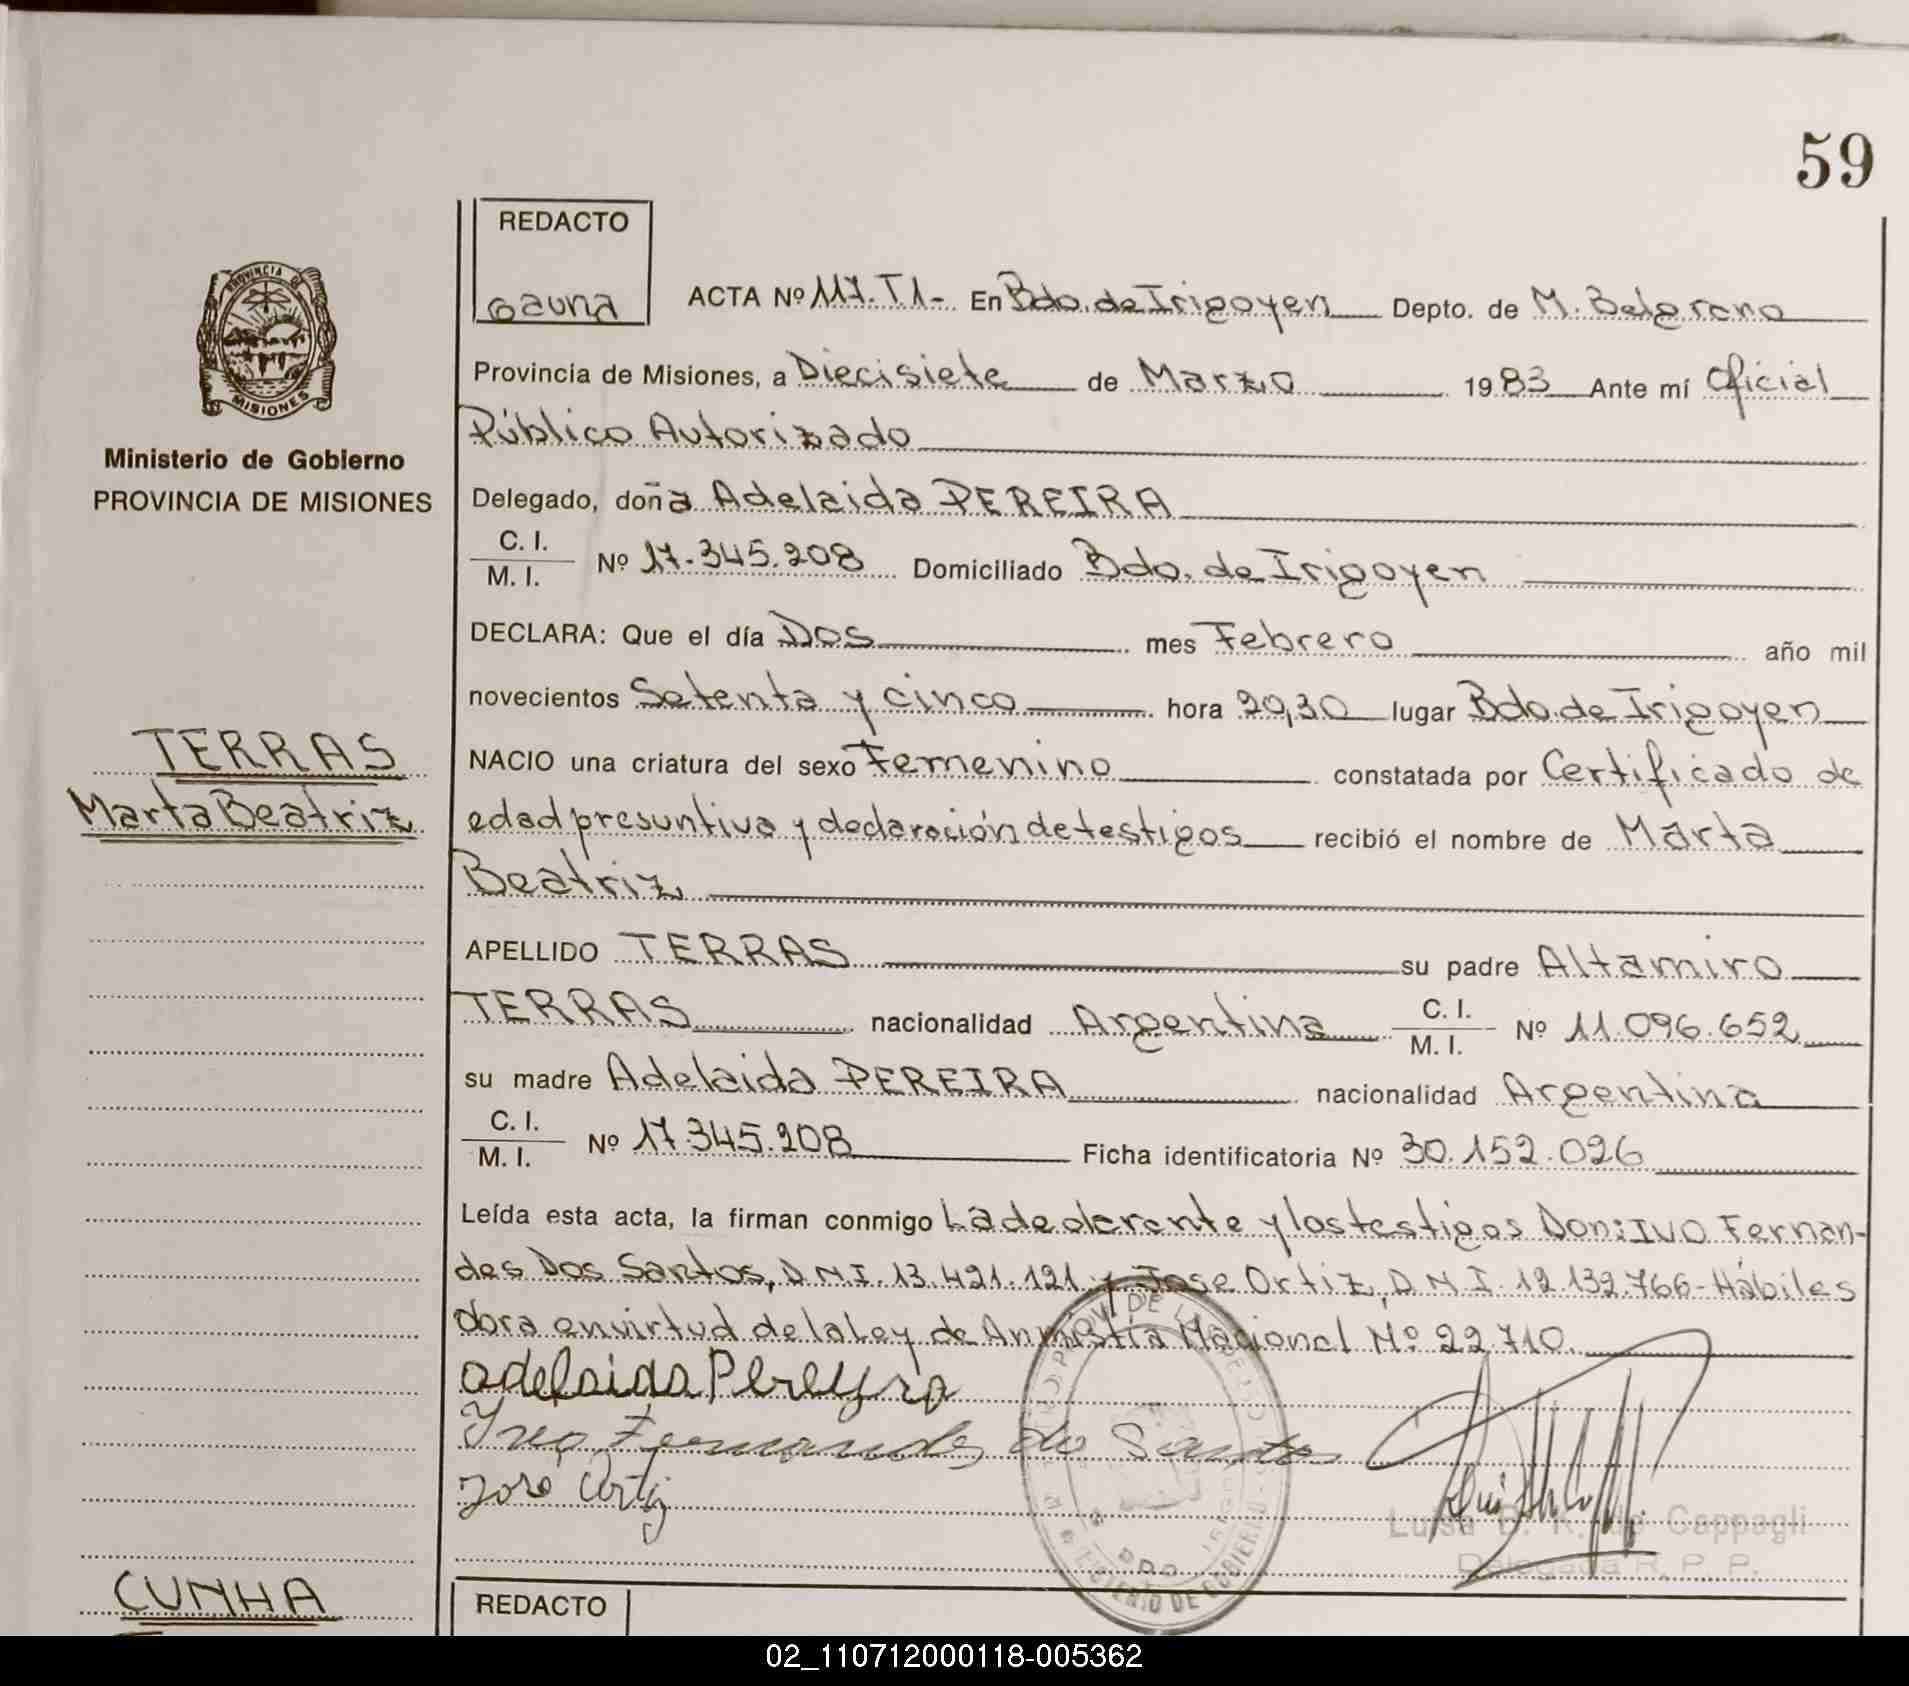 59
REDACTO
Gauna
PROVINCIA DE
MISIONES
Ministerio de Gobierno
PROVINCIA DE MISIONES
ACTA Nº 117.T1- En Bdo. de Irigoyen Depto. de M. Belgrano
Provincia de Misiones, a Diecisiete de Marzo 1983 Ante mí Oficial
Público Autorizado
Delegado, doña Adelaida PEREIRA
C. I.
M. I. Nº 17.345.208 Domiciliado Bdo. de Irigoyen
DECLARA: Que el día Dos mes Febrero año mil
novecientos Setenta y cinco hora 20,30 lugar Bdo. de Irigoyen
TERRAS
Marta Beatriz
NACIO una criatura del sexo Femenino constatada por Certificado de
edad presuntiva y declaración de testigos recibió el nombre de Marta
Beatriz
APELLIDO TERRAS su padre Altamiro
TERRAS nacionalidad Argentina C. I. M. I. Nº 11.096.652
su madre Adelaida PEREIRA nacionalidad Argentina
C. I.
M. I. Nº 17.345.208 Ficha identificatoria Nº 30.152.026
Leída esta acta, la firman conmigo La declarante y los testigos Don: IVO Fernan-
des Dos Santos, D.N.I. 13.421.121 y Jose Ortiz, D.N.I. 12.132.766- Hábiles
dora en virtud de la Ley de Amnistía Nacional Nº 22.710
adelaida Pereyra
Ivo Fernandes do Santos
José Ortiz
Luisa B. K. de Cappagli
Delegada R. P. P.
CUNHA
REDACTO
02_110712000118-005362